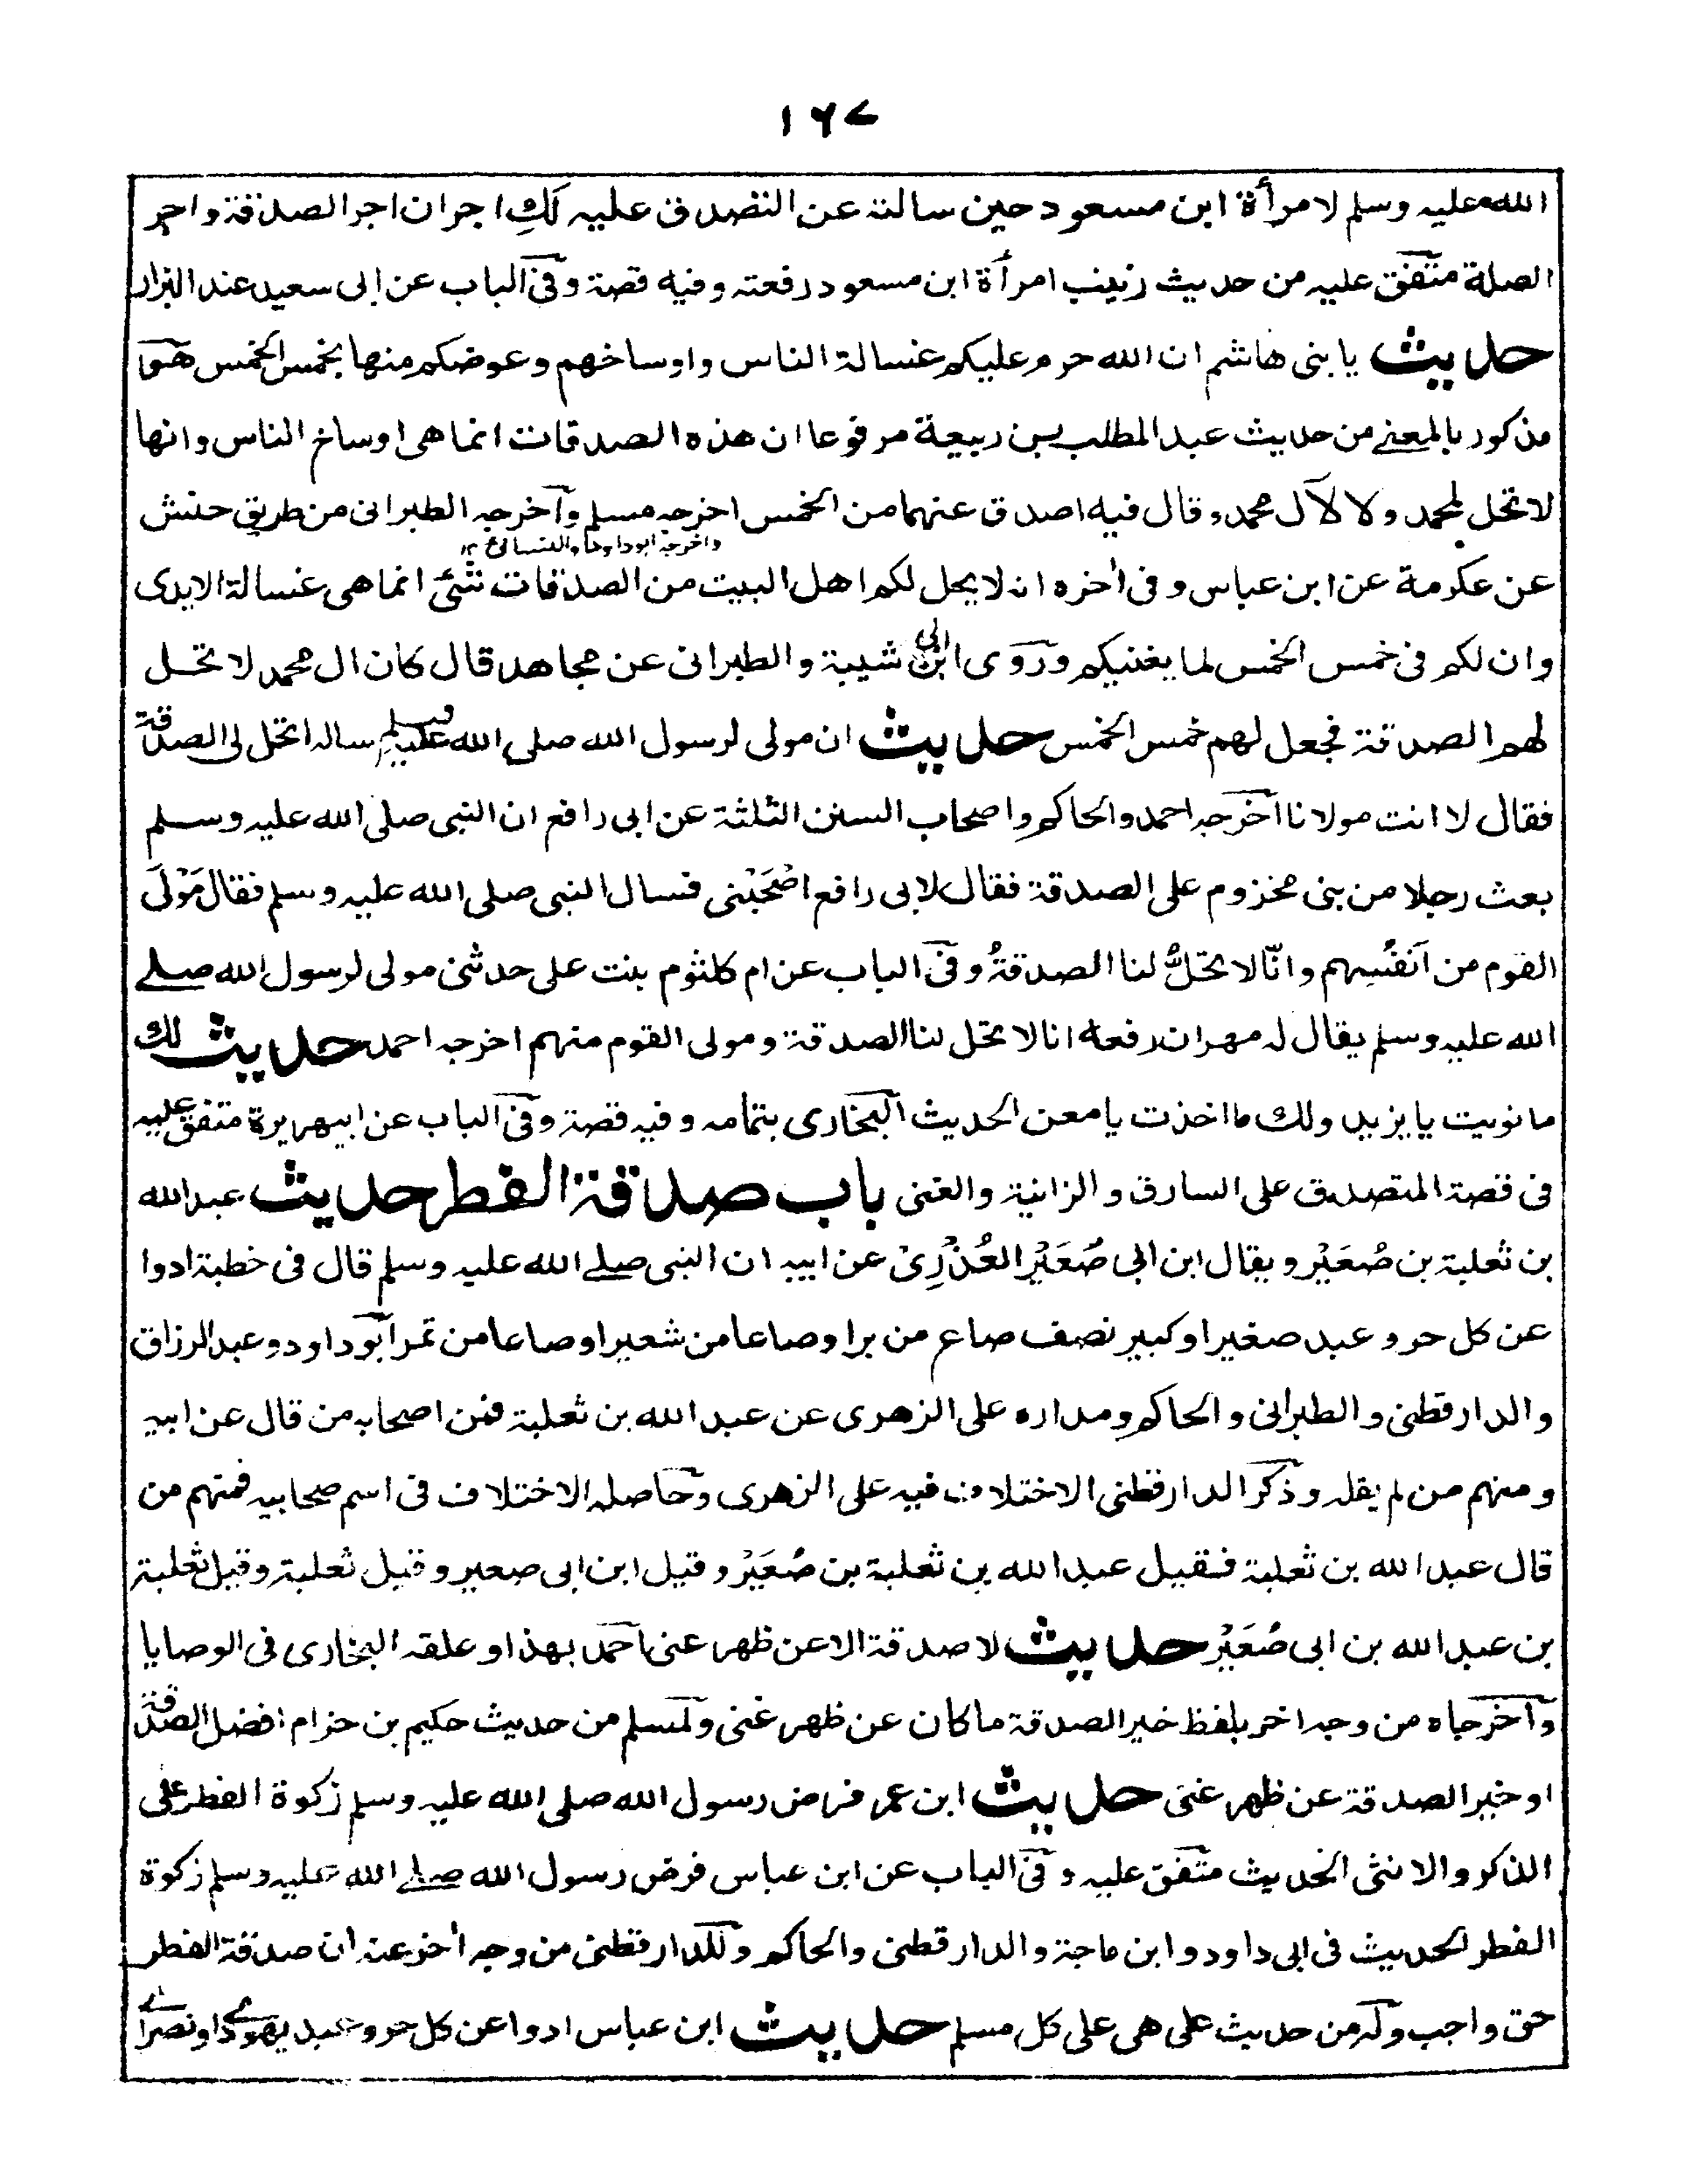 ١٦٧
الله عليه وسلم لامرأة ابن مسعود حين سالته عن التصدق عليه لكِ اجران اجر الصدقة واجر
الصلة متفق عليه من حديث زينب امرأة ابن مسعود رفعته وفيه قصة وفى الباب عن ابى سعيد عند البزار
حديث يا بنى هاشم ان الله حرم عليكم غسالة الناس واوساخهم وعوضكم منها بخمس الخمس هو
مذكور بالمعنے من حديث عبد المطلب بن ربيعة مرفوعا ان هذه الصدقات انما هى اوساخ الناس وانها
لا تحل لمحمد ولا لآل محمد وقال فيه اصدق عنهما من الخمس اخرجه مسلم وآخرجه الطبرانى من طريق حنش
واخرجه ابوداود والنسائى ١٢
عن عكرمة عن ابن عباس وفى أخره انه لا يحل لكم اهل البيت من الصدقات شئ انما هى غسالة الايدى
وان لكم فى خمس الخمس لما يغنيكم وروى ابن ابى شيبة والطبرانى عن مجاهد قال كان ال محمد لا تحل
لهم الصدقة فجعل لهم خمس الخمس حديث ان مولى لرسول الله صلى الله عليه وسلم ساله اتحل لى الصدقة
فقال لا انت مولانا آخرجه احمد والحاكم واصحاب السنن الثلثة عن ابى رافع ان النبى صلى الله عليه وسلم
بعث رجلا من بنى مخزوم على الصدقة فقال لابى رافع اصْحَبْنى فسال النبى صلى الله عليه وسلم فقال مَوْلَى
القوم من اَنْفُسِهم وانّا لا تحلُّ لنا الصدقةُ وفى الباب عن ام كلثوم بنت على حدثنى مولى لرسول الله صلے
الله عليه وسلم يقال له مهران رفعه انا لا تحل لنا الصدقة ومولى القوم منهم اخرجه احمد حديث لك
ما نويت يا يزيد ولك ما اخذت يا معن الحديث البخارى بتمامه وفيه قصة وفى الباب عن ابيهريرة متفق عليه
فى قصة المتصدق على السارق والزانية والغنى باب صدقة الفطر حديث عبد الله
بن ثعلبة بن صُعَيْر ويقال ابن ابى صُعَيْر العُذْرِىّ عن ابيه ان النبى صلے الله عليه وسلم قال فى خطبة ادوا
عن كل حر وعبد صغير او كبير نصف صاع من بر او صاعا من شعير او صاعا من تمر آبو داود وعبد الرزاق
والدارقطنى والطبرانى والحاكم ومداره على الزهرى عن عبد الله بن ثعلبة فمن اصحابه من قال عن ابيه
ومنهم من لم يقله وذكر الدارقطنى الاختلاف فيه على الزهرى وحاصله الاختلاف فى اسم صحابيه فمنهم من
قال عبد الله بن ثعلبة فقيل عبد الله بن ثعلبة بن صُعَيْر وقيل ابن ابى صعير وقيل ثعلبة وقيل ثعلبة
بن عبد الله بن ابى صُعَيْر حديث لا صدقة الا عن ظهر غنى احمد بهذا وعلقه البخارى فى الوصايا
وآخرجاه من وجه اخر بلفظ خير الصدقة ما كان عن ظهر غنى ولمسلم من حديث حكيم بن حزام افضل الصدقة
او خير الصدقة عن ظهر غنى حديث ابن عمر فرض رسول الله صلى الله عليه وسلم زكوة الفطر على
الذكر والانثى الحديث متفق عليه وفى الباب عن ابن عباس فرض رسول الله صلے الله عليه وسلم زكوة
الفطر الحديث فى ابى داود وابن ماجة والدارقطنى والحاكم وللدارقطنى من وجه أخر عنه ان صدقة الفطر
حق واجب وله من حديث على هى على كل مسلم حديث ابن عباس ادوا عن كل حر وعبد يهودے او نصرانے